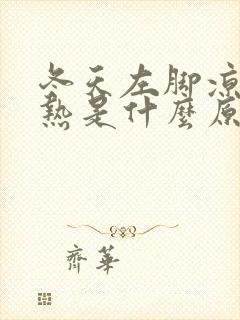 冬天左脚凉
熱是什麼原
齊華